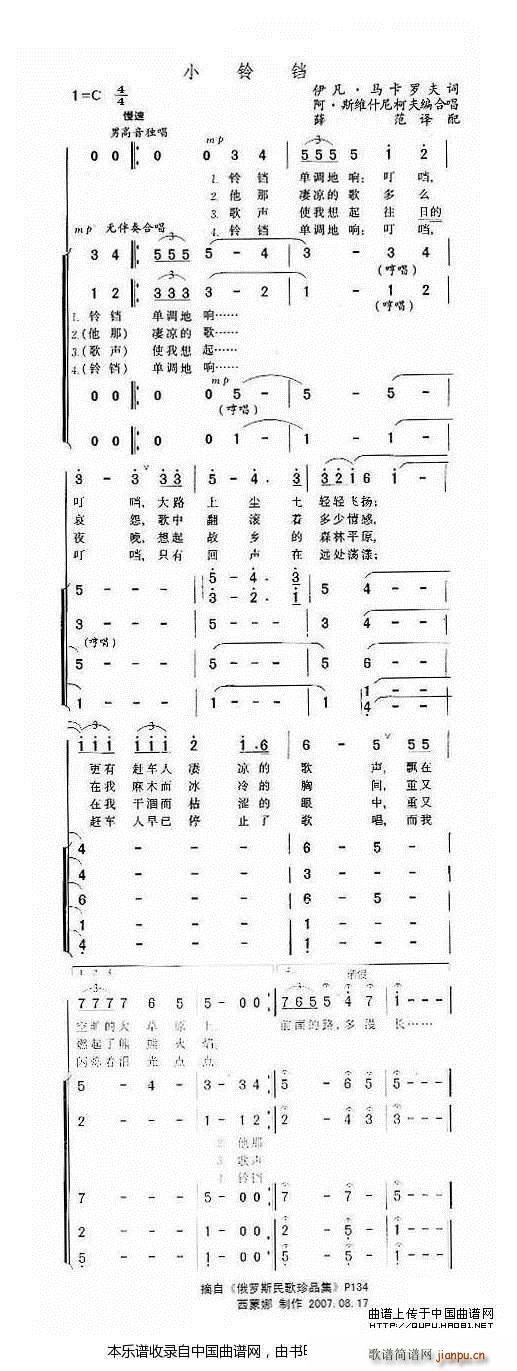 小铃铛
1=C 4/4
伊凡·马卡罗夫词
阿·斯维什尼柯夫编合唱
薛范译配
慢速
男高音独唱
mp
0 0 0 0 3 4 555 5 1 2
1. 铃铛 单调地响；叮铛，
2. 他那 凄凉的歌 多么
3. 歌声 使我想起 往日的
4. 铃铛 单调地响；叮铛，
mp 无伴奏合唱
3 4 555 5 - 4 3 - 3 4
(哼唱)
1 2 333 3 - 2 1 - 1 2
(哼唱)
1. 铃铛 单调地 响……
2.(他那) 凄凉的 歌……
3.(歌声) 使我想 起……
4.(铃铛) 单调地 响……
mp
0 0 0 0 5 - 5 - - - 5 -
(哼唱)
0 0 0 0 1 - 1 - - - 1 -
3 - 3 3 3 5 - 4. 3 3 2 1 6 1 - -
叮 铛，大路 上 尘土 轻轻飞扬；
哀 怨，歌中 翻滚 着 多少情感，
夜 晚，想起 故乡 的 森林平原，
叮 铛，只有 回声 在 远处荡漾；
5 - - - 5 - 4. 3 5 4 - -
3 - 2. 1
3 - - - 3 4 - -
(哼唱)
5 - - - 5 - - - 5 6 - -
1 - - - 1 - - - 1 - -
4 - -
111 111 2 1. 6 6 - 5 5 5
更有 赶车人 凄 凉的 歌 声，飘在
在我 麻木而 冰 冷的 胸 间，重又
在我 干涸而 枯 涩的 眼 中，重又
赶车 人早已 停 止了 歌 唱，而我
4 - - - 6 - 5 -
4 - - - 3 - - -
6 - - - 5 - - -
1 - - - 1 - - -
4 - - - 1 - - -
7777 7 6 5 5 - 0 0 765 5 4 7 1 - -
空旷的大 草原上， 前面的路，多漫 长……
燃起了熊 熊火焰；
闪烁着泪 光点点
5 - 4 - 3 - 3 4 5 - 6 5 5 - -
2 - - - 1 - 1 2 2 - 4 3 3 - -
2 他那
3 歌声
4 铃铛
7 - - - 5 - 0 0 7 - 7 5 - -
2 - - - 1 - 0 0 2 - 2 1 - -
5 - - - 1 - 0 0 5 - 5 1 - -
摘自《俄罗斯民歌珍品集》P134
西蒙娜 制作 2007.08.17
曲谱上传于中国曲谱网
http://QUPU.HAO81.NET
本乐谱收录自中国曲谱网，由书
歌谱简谱网
jianpu.cn